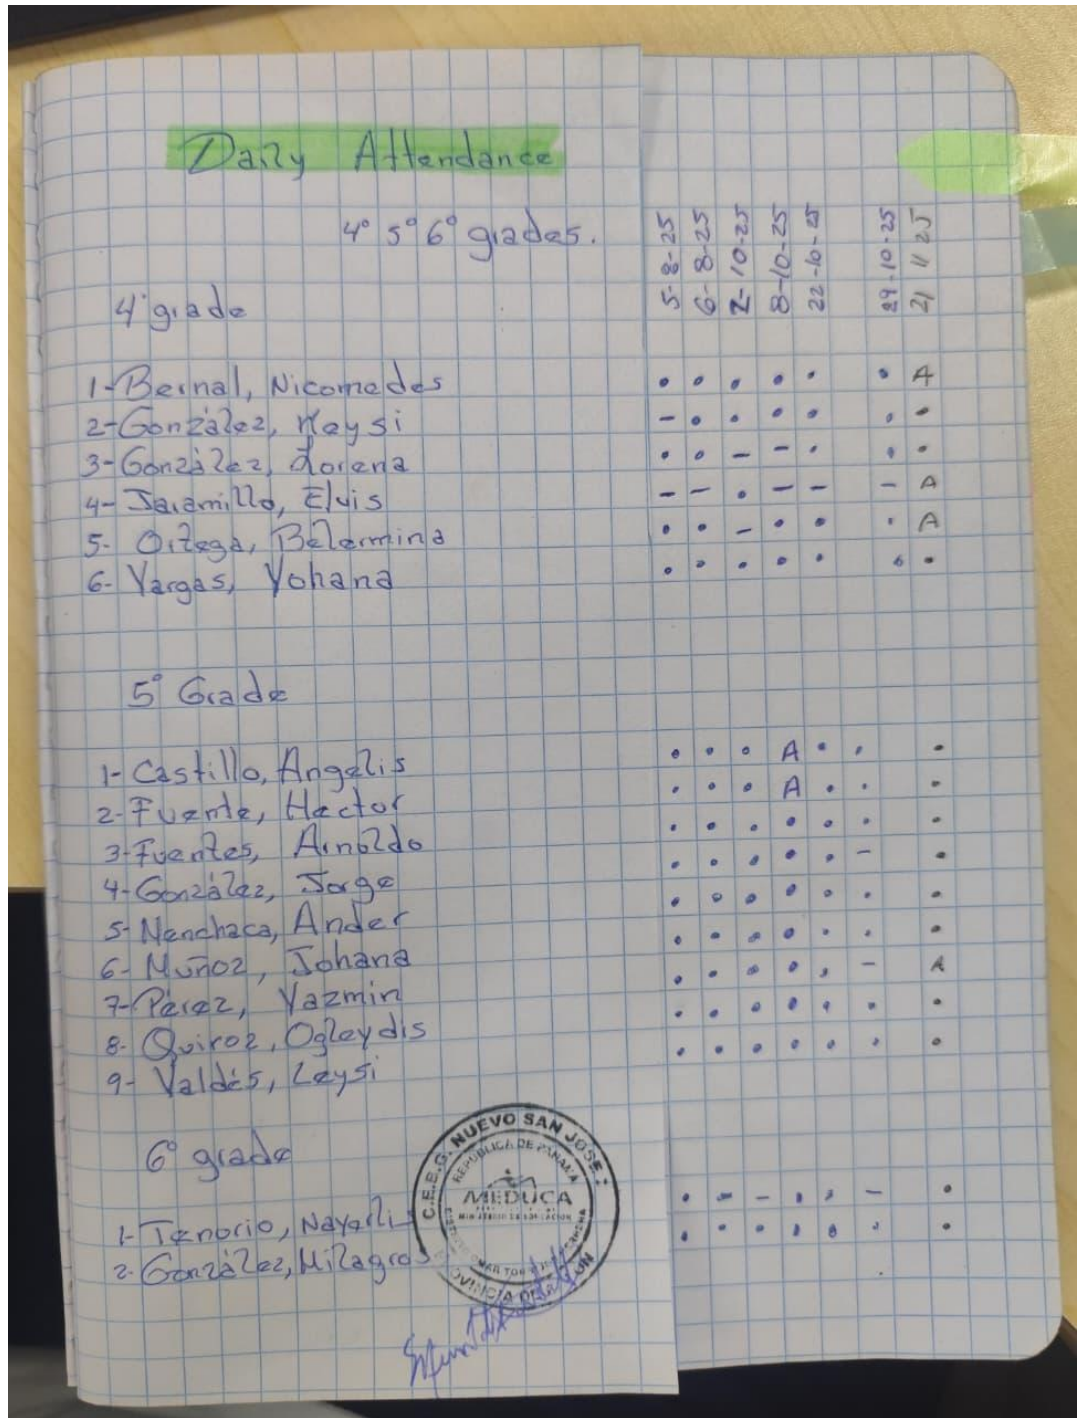 Daily Attendance
4° 5° 6° grades.
5-8-25
6-8-25
2-10-25
8-10-25
22-10-25
29-10-25
21 11 25
4° grade
1- Bernal, Nicomedes • • • • • • A
2- González, Keysi - • • • • • •
3- González, Lorena • • - - • • •
4- Jaramillo, Elvis - - • - - - A
5- Ortega, Belermina • • - • • • A
6- Vargas, Yohana • • • • • • •
5° Grade
1- Castillo, Angelis • • • A • • •
2- Fuente, Hector • • • A • • •
3- Fuentes, Arnoldo • • • • • • •
4- González, Jorge • • • • • - •
5- Menchaca, Ander • • • • • • •
6- Muñoz, Johana • • • • • • •
7- Pérez, Yazmin • • • • • - A
8- Quiroz, Ogleydis • • • • • • •
9- Valdés, Leysi • • • • • • •
6° grade
1- Tenorio, Nayerli • - - • • - •
2- González, Milagros • • • • • • •
C.E.B.G. NUEVO SAN JOSE
REPÚBLICA DE PANAMÁ
MEDUCA
MINISTERIO DE EDUCACIÓN